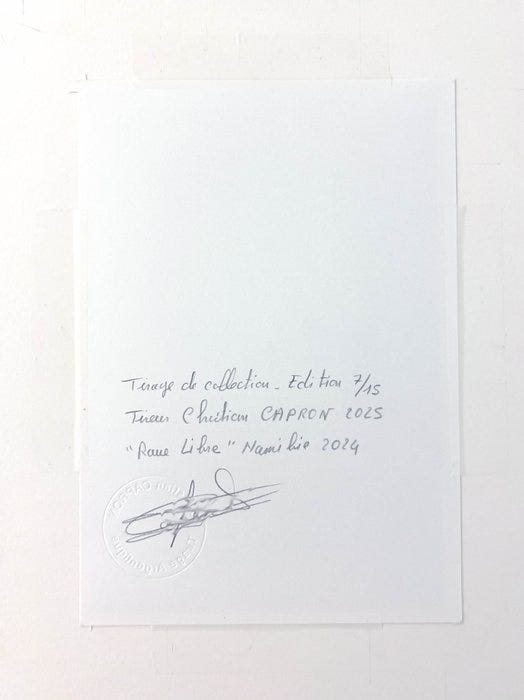 Tirage de collection - Edition 7/15
Tireur Christian CAPRON 2025
" Libre" Namibie 2024
CAPRON